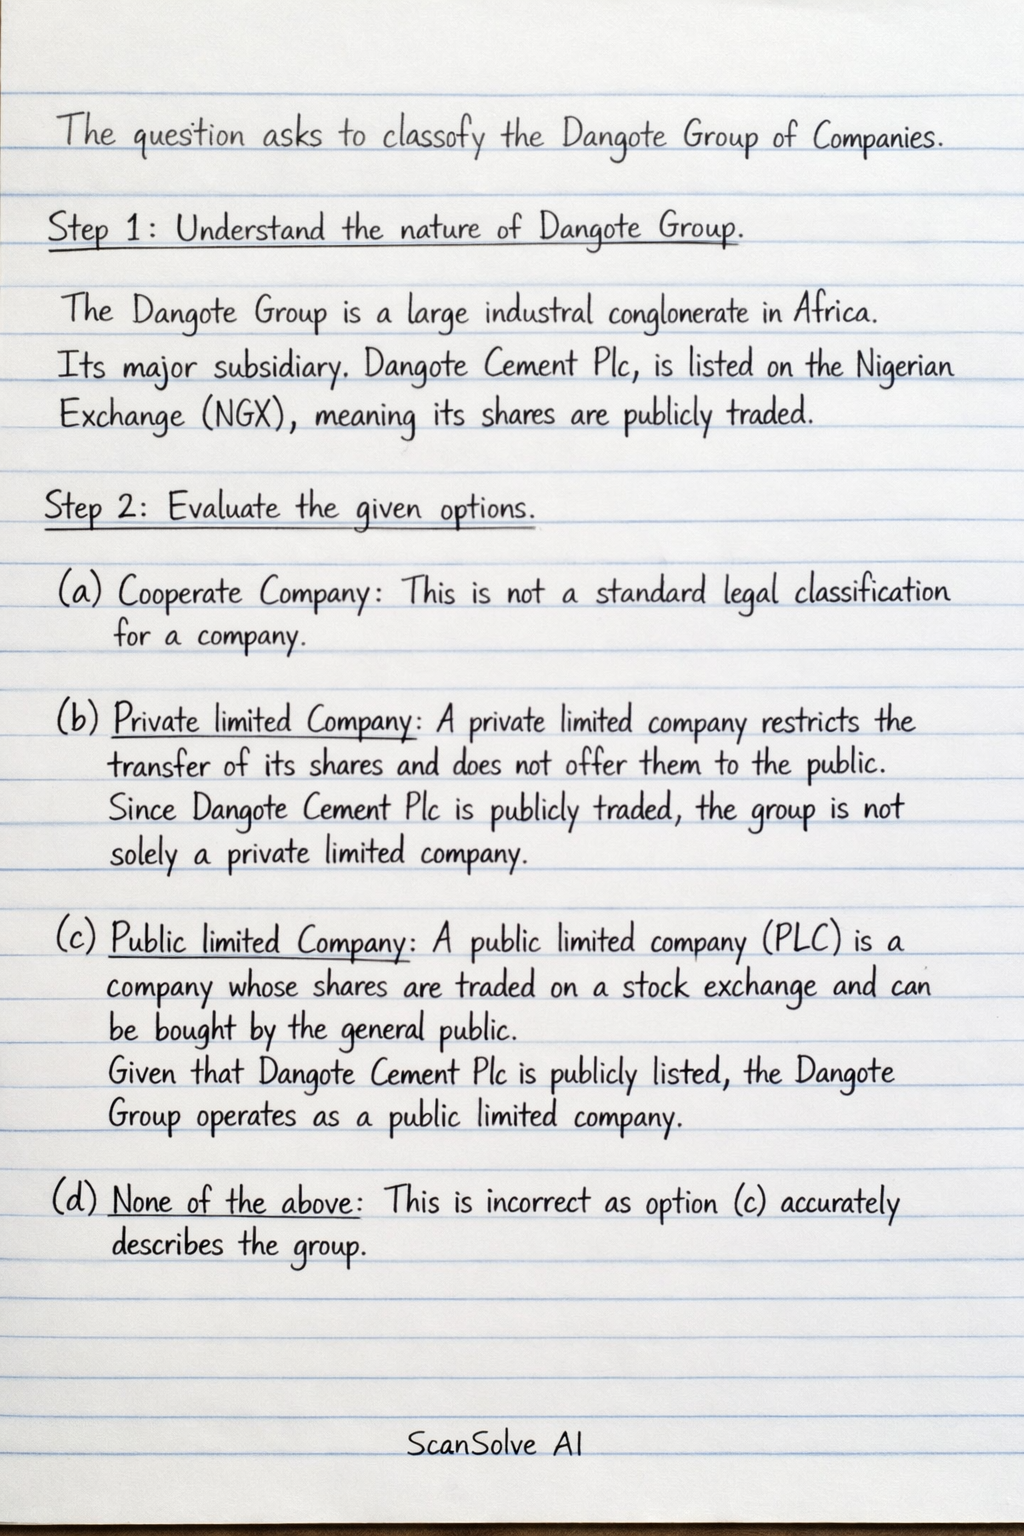 The question asks to classofy the Dangote Group of Companies.
Step 1: Understand the nature of Dangote Group.
The Dangote Group is a large industral conglonerate in Africa.
Its major subsidiary. Dangote Cement Plc, is listed on the Nigerian
Exchange (NGX), meaning its shares are publicly traded.
Step 2: Evaluate the given options.
(a) Cooperate Company: This is not a standard legal classification
for a company.
(b) Private limited Company: A private limited company restricts the
transfer of its shares and does not offer them to the public.
Since Dangote Cement Plc is publicly traded, the group is not
solely a private limited company.
(c) Public limited Company: A public limited company (PLC) is a
company whose shares are traded on a stock exchange and can
be bought by the general public.
Given that Dangote Cement Plc is publicly listed, the Dangote
Group operates as a public limited company.
(d) None of the above: This is incorrect as option (c) accurately
describes the group.
ScanSolve AI